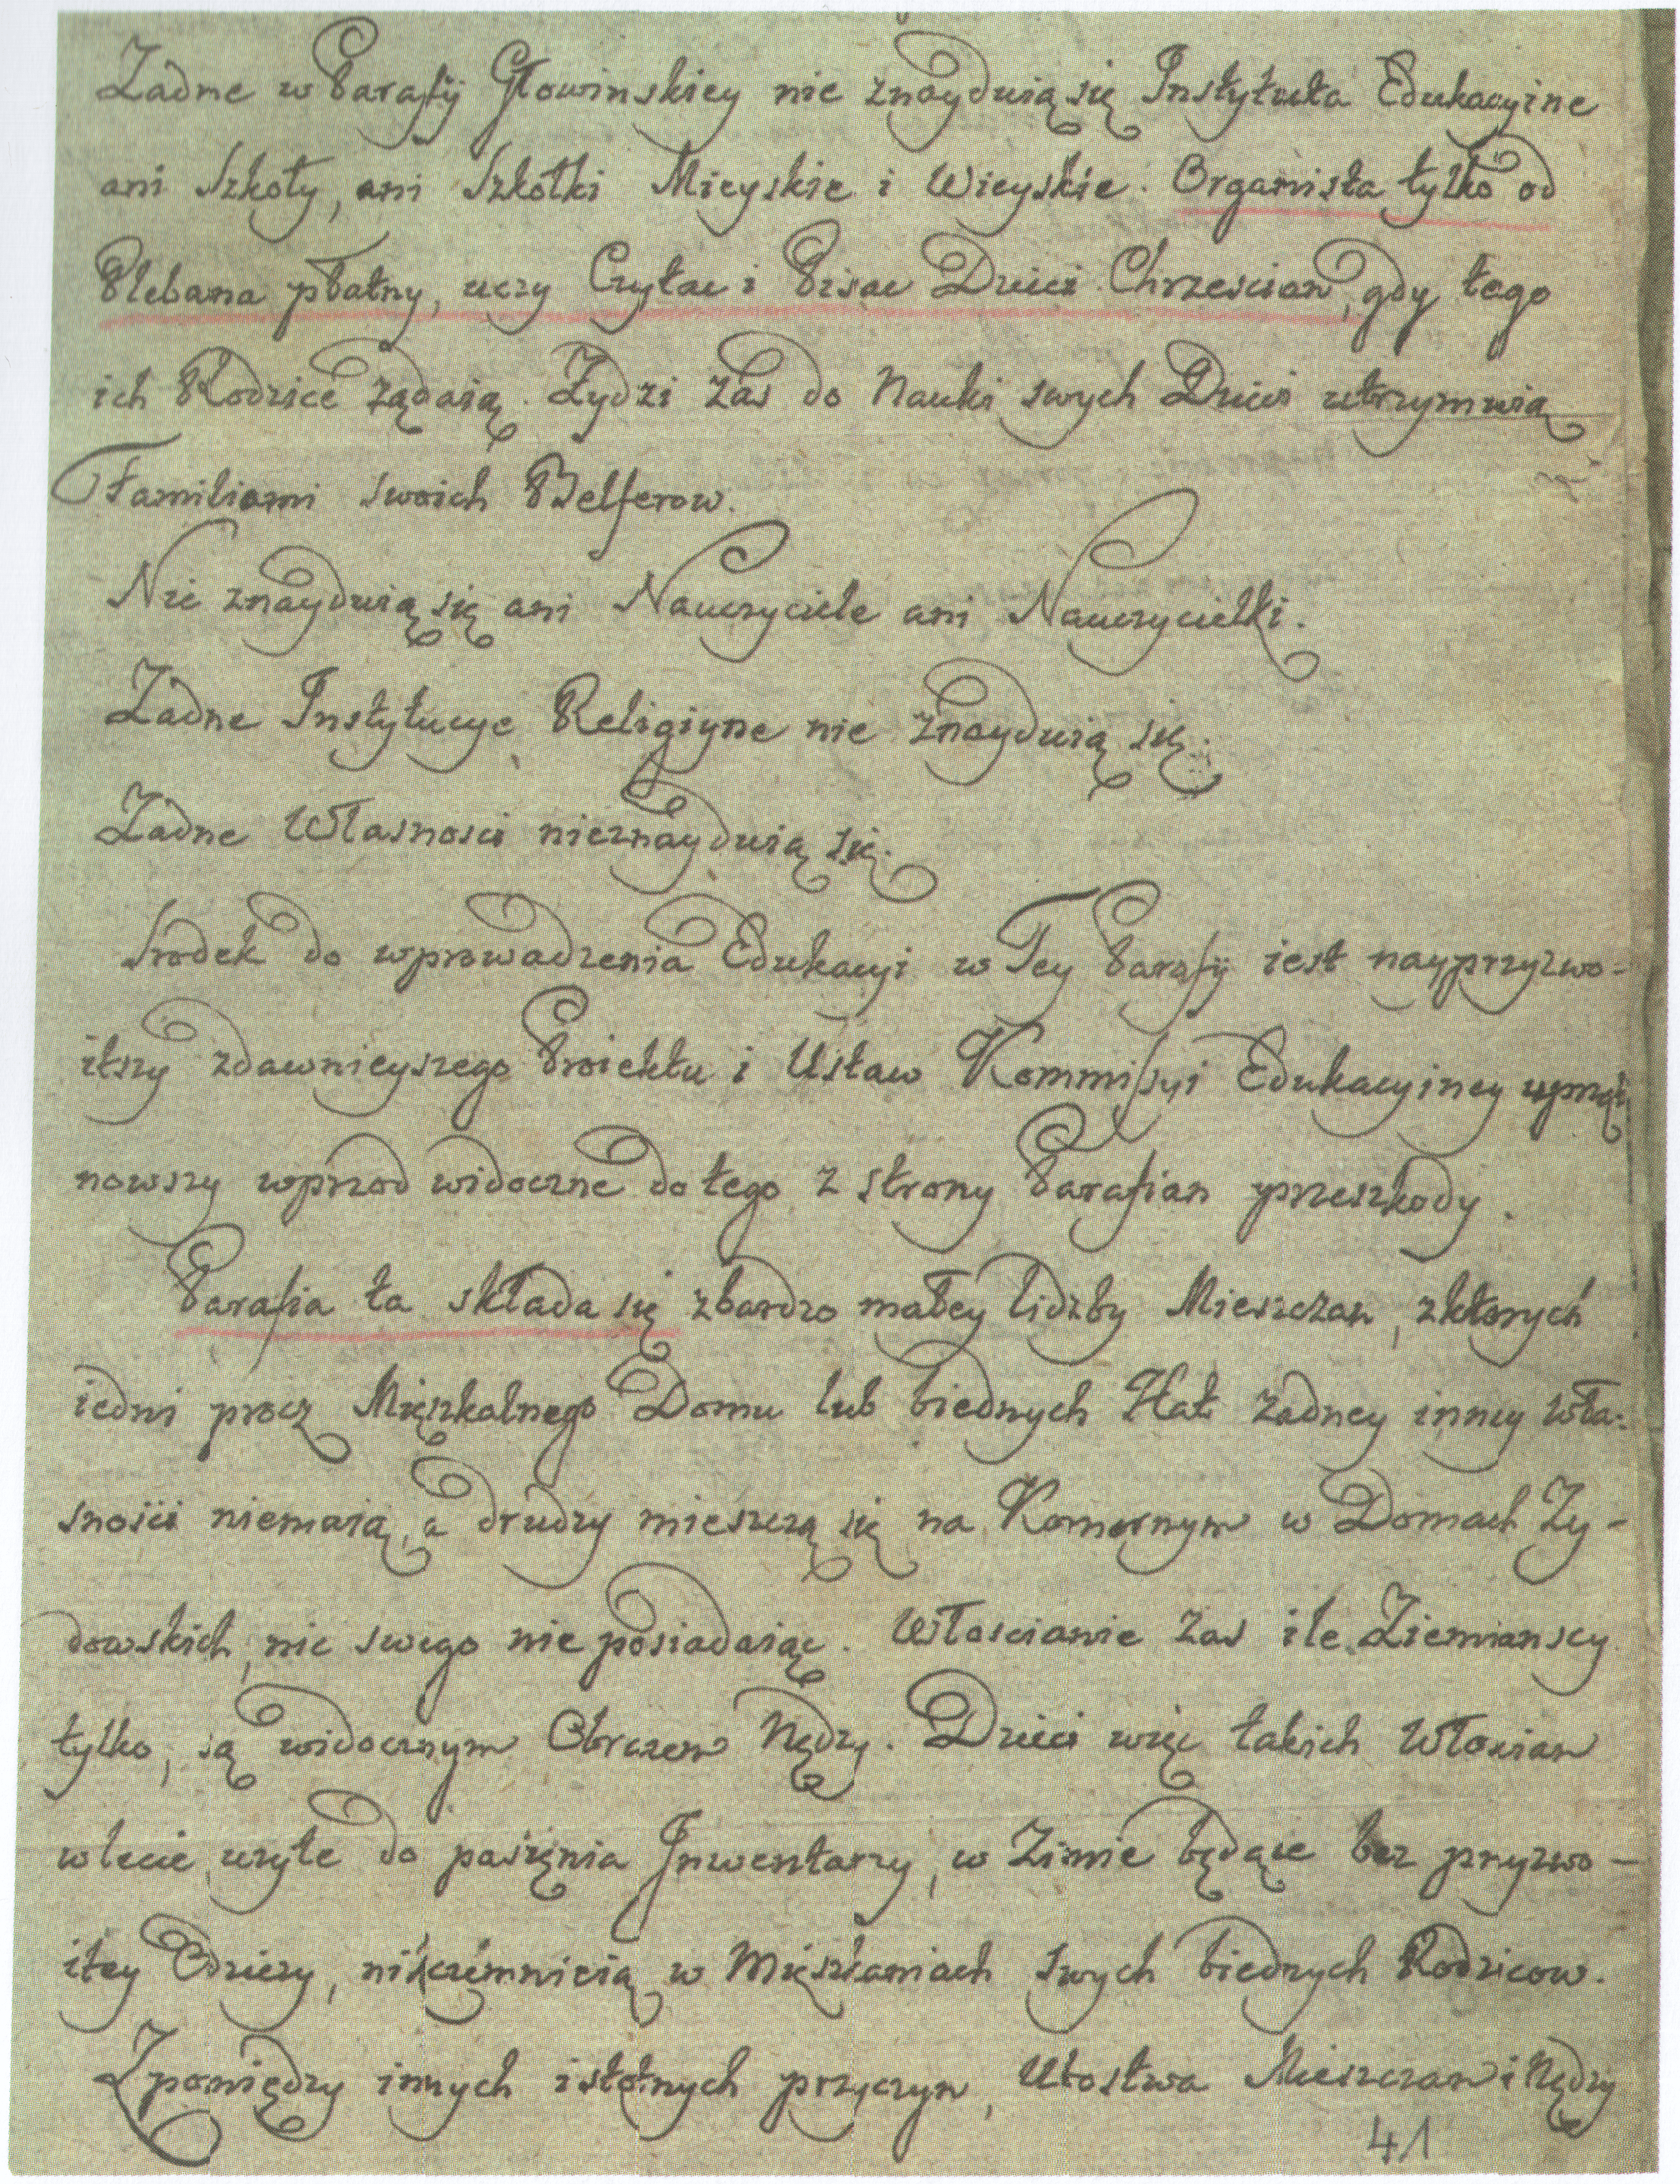 Żadne w Parafij Głowinskiey nie znayduią się Instytuta Edukacyine
ani Szkoły, ani Szkołki Mieyskie i Wieyskie. Organista tylko od
Plebana płatny, uczy Czytac i Pisac Dzieci Chrzescian, gdy tego
ich Rodzice żądaią. Żydzi zas do Nauki swych Dzieci utrzymuią
Familiami swoich Belferow.
Nie znayduią się ani Nauczyciele ani Nauczycielki.
Żadne Instytucye Religiyne nie znayduią się.
Żadne Własnosci nieznayduią się.
Srodek do wprowadzenia Edukacyi w Tey Parafij iest nayprzyzwo=
itszy zdawnieyszego Proiektu i Ustaw Kommissyi Edukacyiney
nowszy wprzod widoczne do tego z strony Parafian przeszkody.
Parafia ta składa się zbardzo małey lidzby Mieszczan, zktorych
iedni procz Mięszkalnego Domu lub biednych Hat żadney inney wła=
snosci niemaią, a drudzy mieszczą się na Komornym w Domach Zy-
dowskich, nic swego nie posiadaiąc. Włoscianie zas ile Ziemianscy
tylko, są widocznym Obrazem Nędzy. Dzieci więc takich Włoscian
wlecie uzyte do pasięnia Inwentarzy, w Zimie będące bez przyzwo-
itey Odziezy, nikczemnieią w Mięszkaniach swych biednych Rodzicow.
Zpomiędzy innych istotnych przyczyn, Ubostwa Mieszczan i Nędzy
41